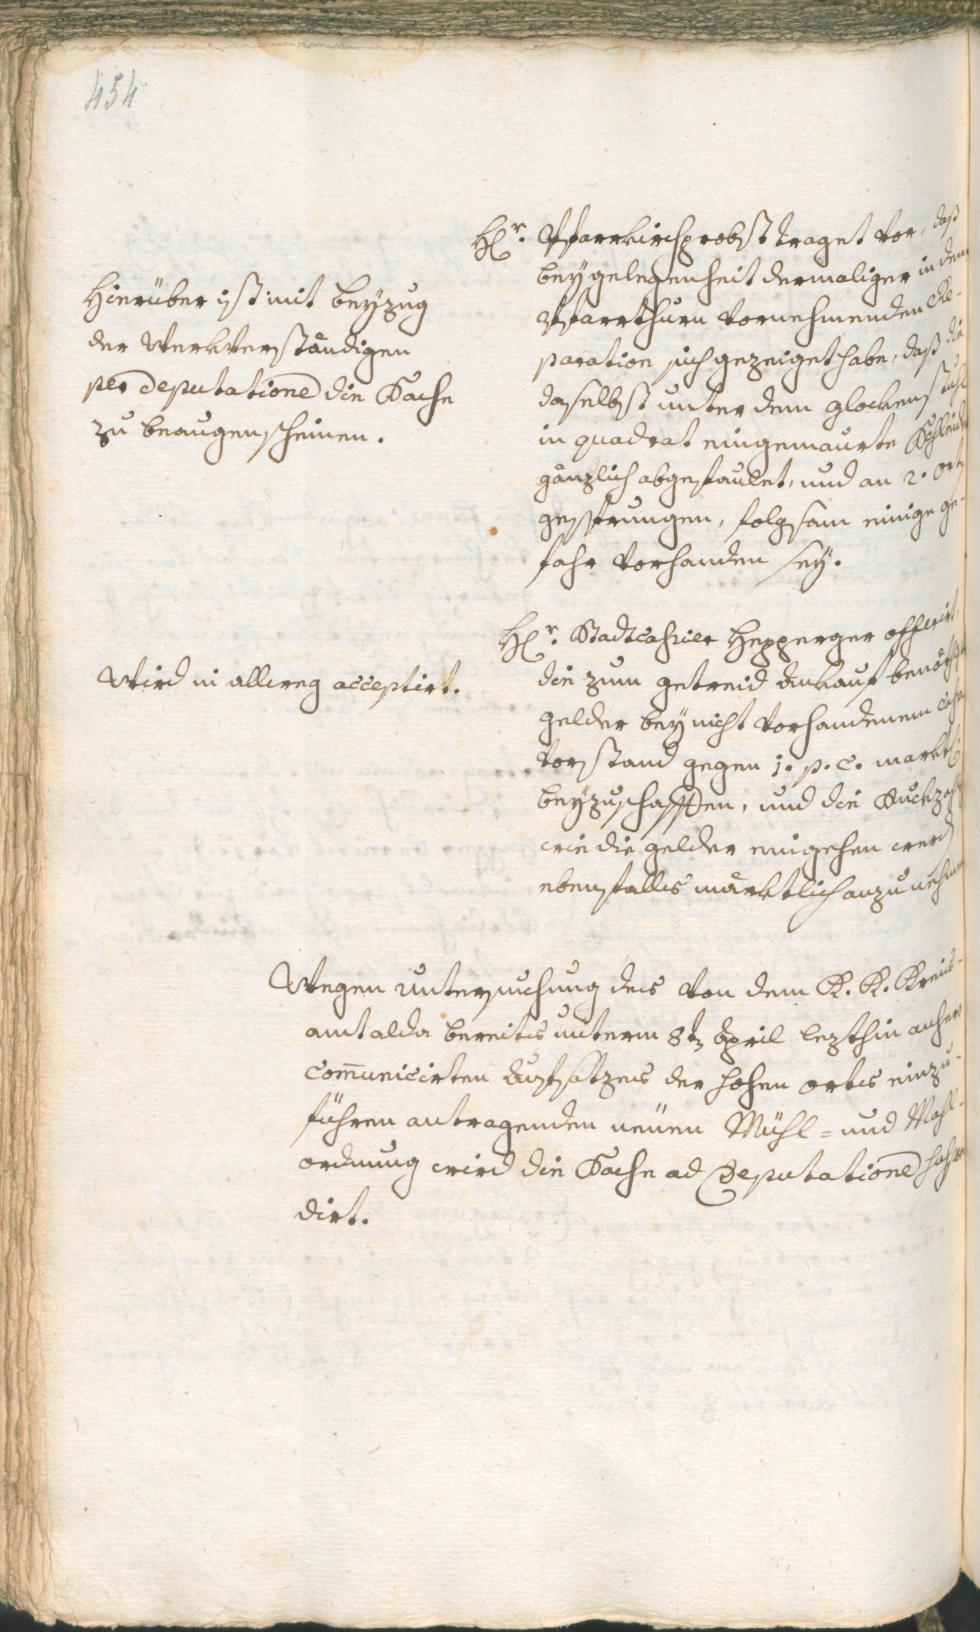 454
Hr. Pfarrkirchprobst traget vor, daß
bey gelegenheit dermaliger in dem
Pfarrthurn vornehmenden Re-
paration sich gezeiget habe, daß die
daselbst unter dem glockenstuhl
in quadrat eingemaurte
gänzlich abgefaulet, und an 2. ort
gesprungen, folgsam einige ge-
fahr vorhanden sey.
Hierüber ist mit beyzug
der Werkverständigen
per Deputatione die Sache
zu beaugenscheinen.
Hr. Stadtcassier Hepperger offerirt
die zum getreid Ankauf benöth
gelder bey nicht vorhandenem
vorstand gegen 1. p. C. markt
beyzuschaffen, und die Ruckzah
wie die gelder eingehen werd
ebenfalls märktlich anzunehm
Wird in allweg acceptirt.
Wegen untersuchung des von dem K. K. Kreis-
amt alda bereits unterm 8t April lezthin anhero
comunicirten Aufsatzes der hohen orts einzu-
führen antragenden neuen Mühl- und Mahl-
ordnung wird die Sache ad Deputatione
dirt.